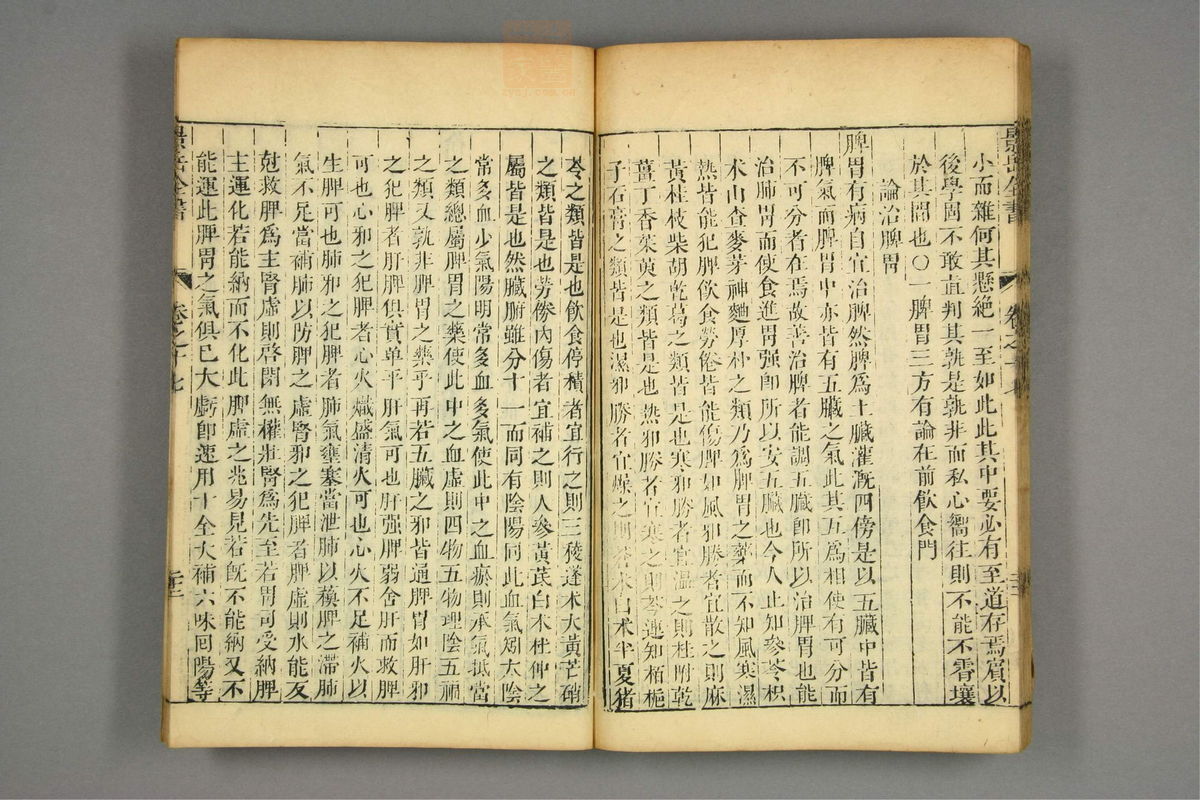 景岳全書 卷之十七
小而雜何其懸絕一至如此此其中要必有至道存焉賓以
後學固不敢直判其孰是孰非而私心嚮往則不能不霄壤
於其間也〇一脾胃三方有論在前飲食門
論治脾胃
脾胃有病自宜治脾然脾爲土臟灌溉四傍是以五臟中皆有
脾氣而脾胃中亦皆有五臟之氣此其互爲相使有可分而
不可分者在焉故善治脾者能調五臟卽所以治脾胃也能
治肺胃而使食進胃强卽所以安五臟也今人止知參苓枳
术山查麥芽神麯厚朴之類乃爲脾胃之藥而不知風寒濕
熱皆能犯脾飲食勞倦皆能傷脾如風邪勝者宜散之則麻
黃桂枝柴胡乾葛之類皆是也寒邪勝者宜溫之則桂附乾
薑丁香茱萸之類皆是也熱邪勝者宜寒之則芩連知栢梔
子石膏之類皆是也濕邪勝者宜燥之則蒼术白术半夏猪
苓之類皆是也飲食停積者宜行之則三稜蓬术大黃芒硝
之類皆是也勞倦內傷者宜補之則人參黃茋白术杜仲之
屬皆是也然臟腑雖分十一而同有陰陽同此血氣矧太陰
常多血少氣陽明常多血多氣使此中之血瘀則承氣抵當
之類總屬脾胃之藥使此中之血虛則四物五物理陰五福
之類又孰非脾胃之藥乎再若五臟之邪皆通脾胃如肝邪
之犯脾者肝脾俱實單平肝氣可也肝强脾弱舍肝而救脾
可也心邪之犯脾者心火熾盛清火可也心火不足補火以
生脾可也肺邪之犯脾者肺氣壅塞當泄肺以蘓脾之滯肺
氣不足當補肺以防脾之虛腎邪之犯脾者脾虛則水能反
尅救脾爲主腎虛則啓閉無權壯腎爲先至若胃司受納脾
主運化若能納而不化此脾虛之兆易見若旣不能納又不
能運此脾胃之氣俱已大虧卽速用十全大補六味回陽等
景岳全書 卷之十七